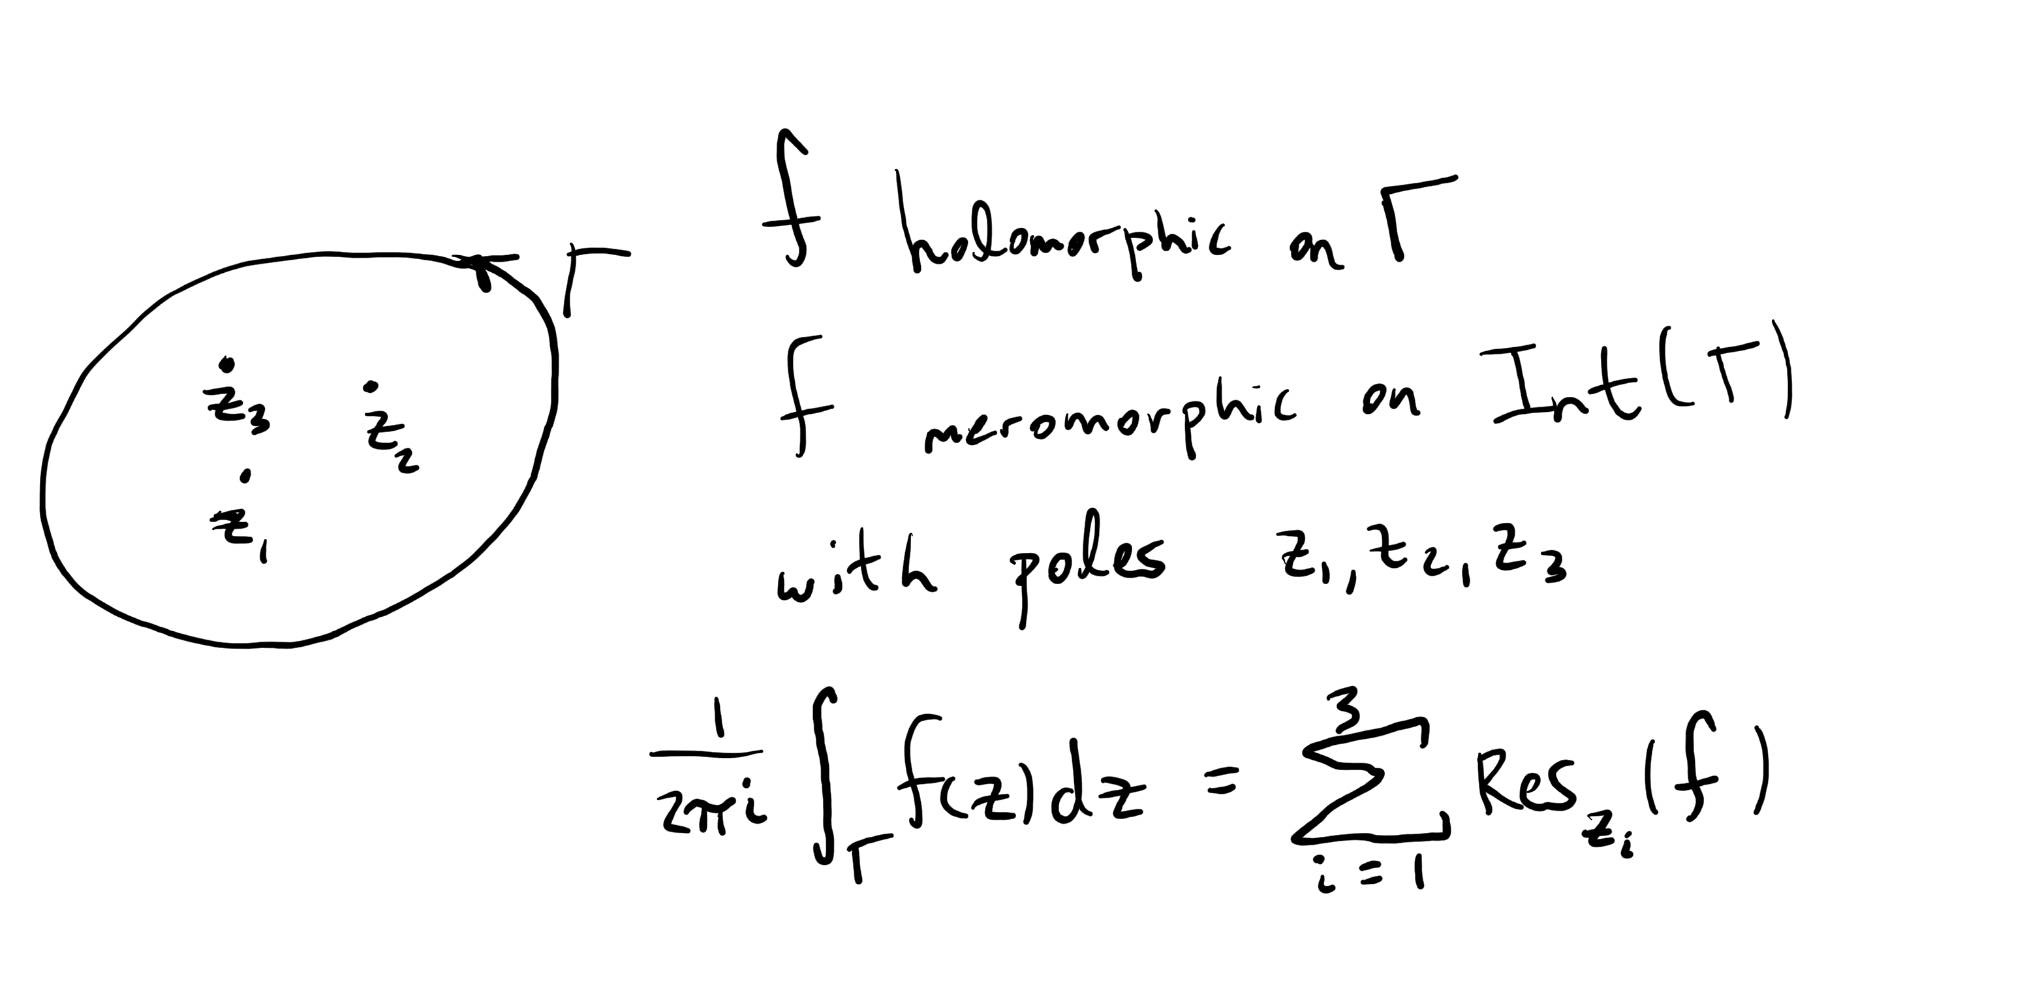 Γ
z₃
z₂
z₁
f holomorphic on Γ
f meromorphic on Int(Γ)
with poles z₁, z₂, z₃
1/2πi ∫_Γ f(z)dz = ∑_{i=1}^{3} Res_{z_i}(f)